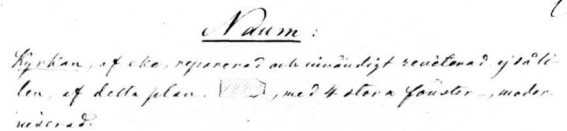 Naum:
Kyrkan, af eke, reparerad och invändigt renoverad, ej så li-
ten, af detta plan. , med 4 stora fönster, moder-
niserad.